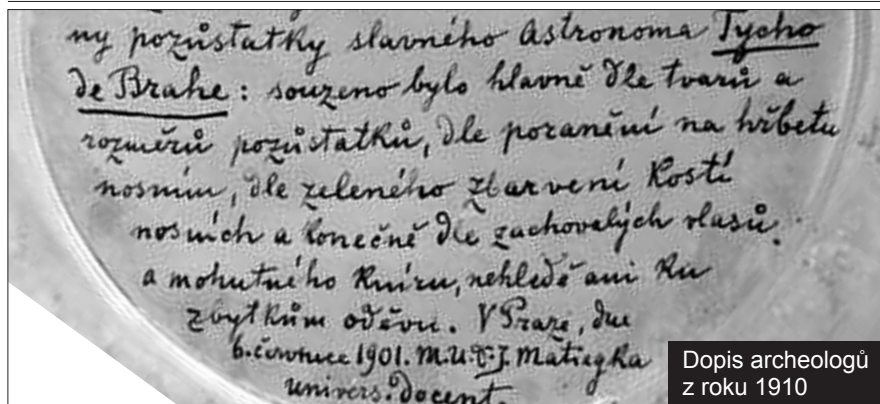 ny pozůstatky slavného astronoma Tycho
de Brahe : souzeno bylo hlavně dle tvarů a
rozměrů pozůstatků, dle poranění na hřbetu
nosním, dle zeleného zbarvení kostí
nosních a konečně dle zachovalých vlasů
a mohutného kníru, nehledě ani ku
zbytkům oděvu. V Praze, dne
6. července 1901. M.U.Dr. J. Matiegka
univers. docent.
Dopis archeologů
z roku 1910